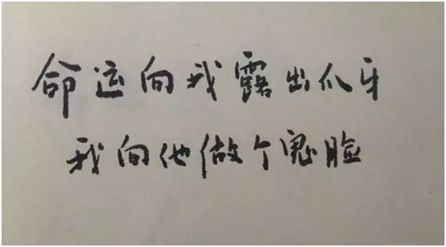 命运向我露出爪牙
我向他做个鬼脸